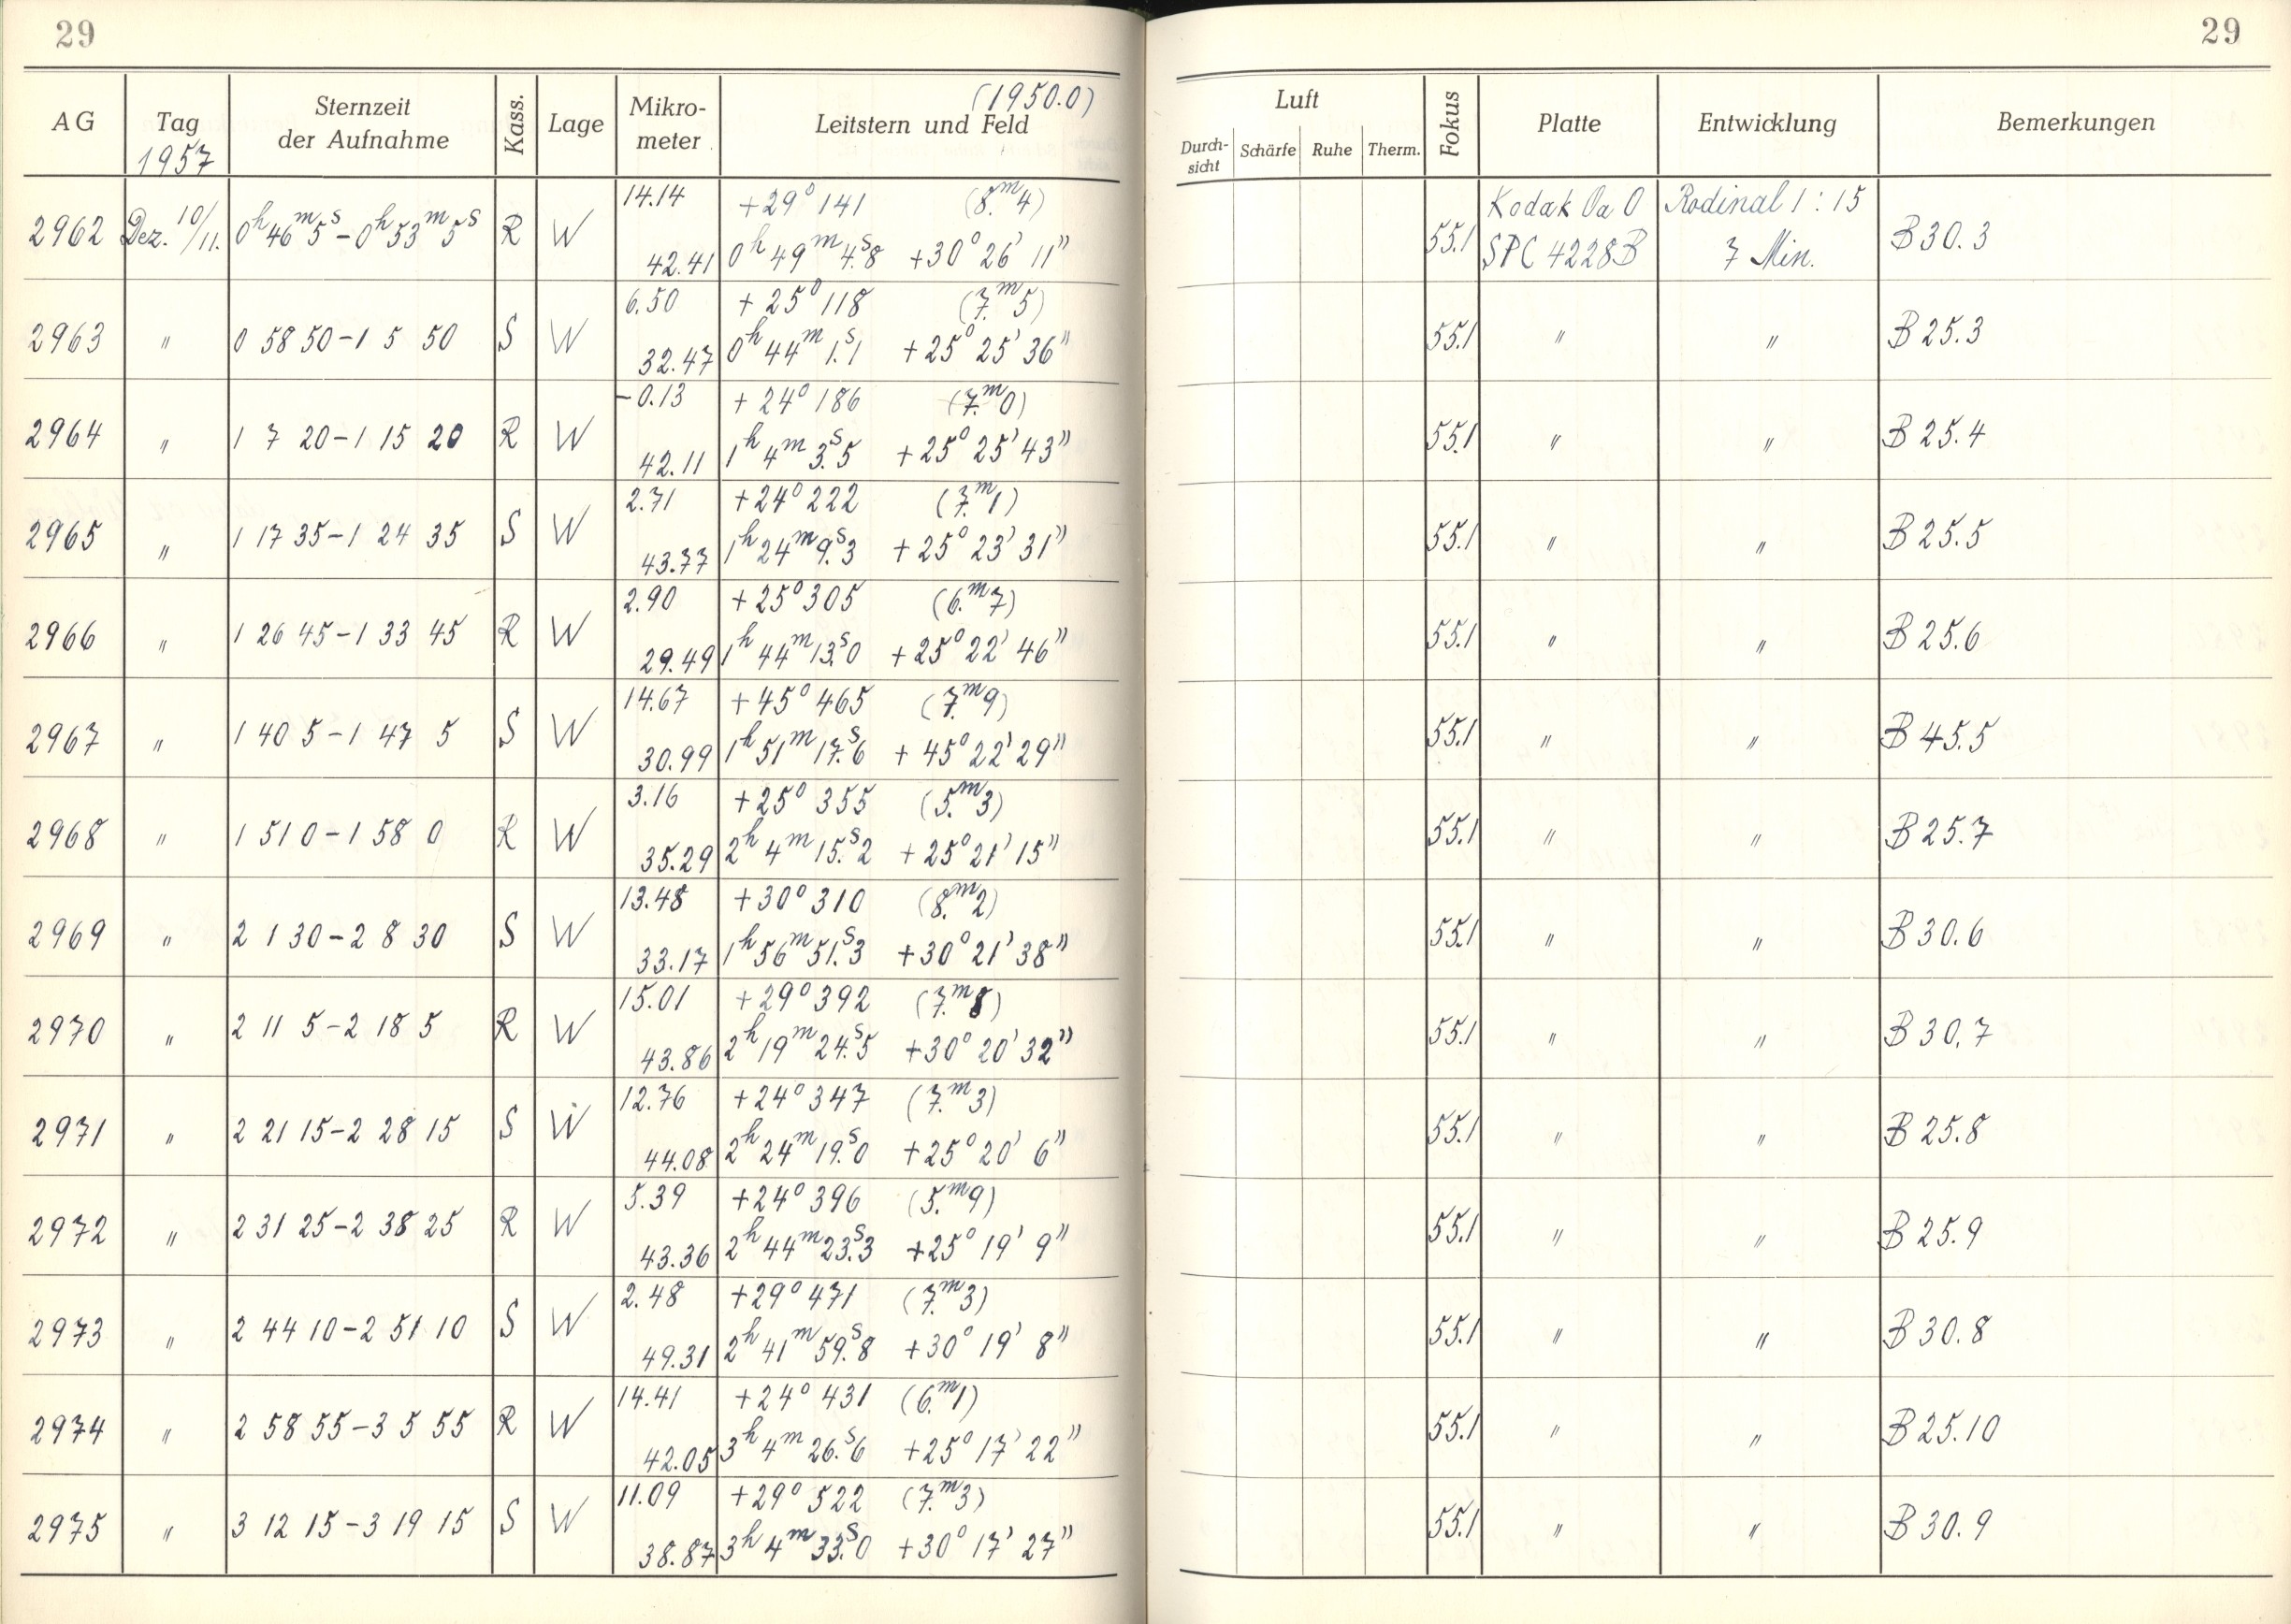 29
29
(1950.0)
AG Tag Sternzeit der Aufnahme Kass. Lage Mikro-meter Leitstern und Feld
1957
Luft
Durch-sicht Schärfe Ruhe Therm. Fokus Platte Entwicklung Bemerkungen
14.14 +29° 141 (8.m4) Kodak Oa O Rodinal 1:15
2962 Dez. 10/11. 0h 46m 5s – 0h 53m 5s R W 55.1 B 30.3
42.41 0h 49m 4.s8 +30° 26' 11" SPC 4228B 7 Min.
6.50 +25° 118 (7.m5)
2963 " 0 58 50 – 1 5 50 S W 55.1 " " B 25.3
32.47 0h 44m 1.s1 +25° 25' 36"
-0.13 +24° 186 (7.m0)
2964 " 1 7 20 – 1 15 20 R W 55.1 " " B 25.4
42.11 1h 4m 3.s5 +25° 25' 43"
2.71 +24° 222 (7.m1)
2965 " 1 17 35 – 1 24 35 S W 55.1 " " B 25.5
43.77 1h 24m 9.s3 +25° 23' 31"
2.90 +25° 305 (6.m7)
2966 " 1 26 45 – 1 33 45 R W 55.1 " " B 25.6
29.49 1h 44m 13.s0 +25° 22' 46"
14.67 +45° 465 (7.m9)
2967 " 1 40 5 – 1 47 5 S W 55.1 " " B 45.5
30.99 1h 51m 17.s6 +45° 22' 29"
3.16 +25° 355 (5.m3)
2968 " 1 51 0 – 1 58 0 R W 55.1 " " B 25.7
35.29 2h 4m 15.s2 +25° 21' 15"
13.48 +30° 310 (8.m2)
2969 " 2 1 30 – 2 8 30 S W 55.1 " " B 30.6
33.17 1h 56m 51.s3 +30° 21' 38"
15.01 +29° 392 (7.m8)
2970 " 2 11 5 – 2 18 5 R W 55.1 " " B 30.7
43.86 2h 19m 24.s5 +30° 20' 32"
12.76 +24° 347 (7.m3)
2971 " 2 21 15 – 2 28 15 S W 55.1 " " B 25.8
44.08 2h 24m 19.s0 +25° 20' 6"
5.39 +24° 396 (5.m9)
2972 " 2 31 25 – 2 38 25 R W 55.1 " " B 25.9
43.36 2h 44m 23.s3 +25° 19' 9"
2.48 +29° 471 (7.m3)
2973 " 2 44 10 – 2 51 10 S W 55.1 " " B 30.8
49.31 2h 41m 59.s8 +30° 19' 8"
14.41 +24° 431 (6.m1)
2974 " 2 58 55 – 3 5 55 R W 55.1 " " B 25.10
42.05 3h 4m 26.s6 +25° 17' 22"
11.09 +29° 522 (7.m3)
2975 " 3 12 15 – 3 19 15 S W 55.1 " " B 30.9
38.87 3h 4m 33.s0 +30° 17' 27"